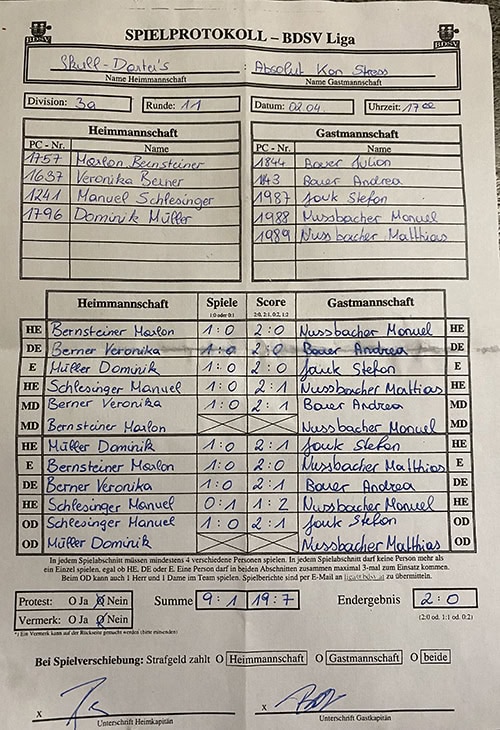 SPIELPROTOKOLL – BDSV Liga
BDSV BDSV
Skull-Dartei's : Absolut Kan Stress
Name Heimmannschaft Name Gastmannschaft
Division: 3a Runde: 11 Datum: 02.04. Uhrzeit: 17 00
Heimmannschaft Gastmannschaft
PC - Nr. Name PC - Nr. Name
1757 Marlon Bernsteiner 1844 Bauer Julian
1637 Veronika Berner 1143 Bauer Andrea
1241 Manuel Schlesinger 1987 Jauk Stefan
1796 Dominik Müller 1988 Nussbacher Manuel
1989 Nussbacher Matthias
Heimmannschaft Spiele Score Gastmannschaft
1:0 oder 0:1 2:0, 2:1, 0:2, 1:2
HE Bernsteiner Marlon 1:0 2:0 Nussbacher Manuel HE
DE Berner Veronika 1:0 2:0 Bauer Andrea DE
E Müller Dominik 1:0 2:0 Jauk Stefan E
HE Schlesinger Manuel 1:0 2:1 Nussbacher Matthias HE
MD Berner Veronika 1:0 2:1 Bauer Andrea MD
MD Bernsteiner Marlon Nussbacher Manuel MD
HE Müller Dominik 1:0 2:1 Jauk Stefan HE
E Bernsteiner Marlon 1:0 2:0 Nussbacher Matthias E
DE Berner Veronika 1:0 2:1 Bauer Andrea DE
HE Schlesinger Manuel 0:1 1:2 Nussbacher Manuel HE
OD Schlesinger Manuel 1:0 2:1 Jauk Stefan OD
OD Müller Dominik Nussbacher Matthias OD
In jedem Spielabschnitt müssen mindestens 4 verschiedene Personen spielen. In jedem Spielabschnitt darf keine Person mehr als
ein Einzel spielen, egal ob HE, DE oder E. Eine Person darf in beiden Abschnitten zusammen maximal 3-mal zum Einsatz kommen.
Beim OD kann auch 1 Herr und 1 Dame im Team spielen. Spielberichte sind per E-Mail an zu übermitteln.
Protest: O Ja O Nein Summe 9:1 19:7 Endergebnis 2:0
Vermerk: O Ja O Nein (2:0 od. 1:1 od. 0:2)
*) Ein Vermerk kann auf der Rückseite gemacht werden (bitte mitsenden)
Bei Spielverschiebung: Strafgeld zahlt O Heimmannschaft O Gastmannschaft O beide
x x
Unterschrift Heimkapitän Unterschrift Gastkapitän